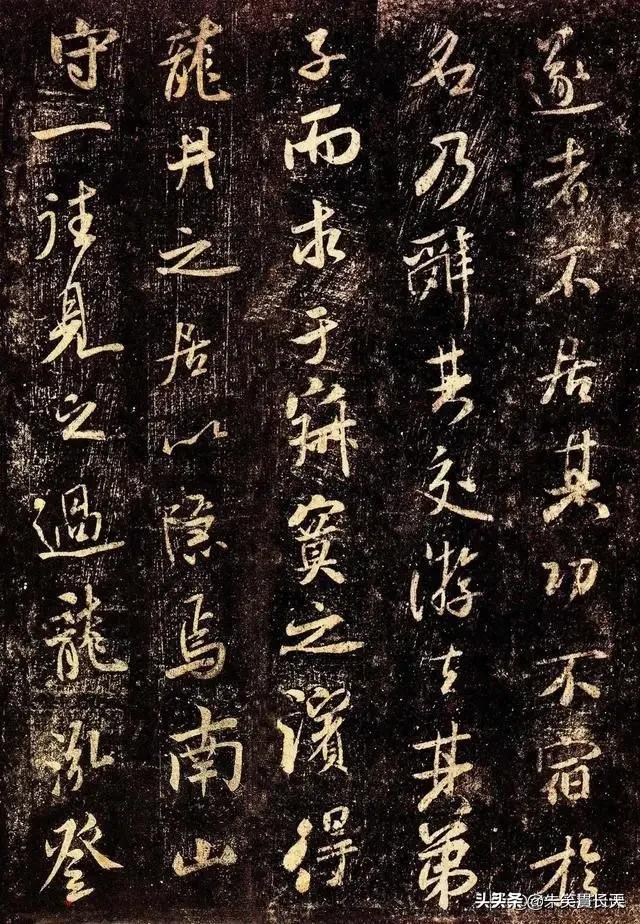 遂者不居其功不宿於
名乃辭其交游去其弟
子而求于寂寞之濱得
龍井之居以隐焉南山
守一往見之過龍泓登
头条 @朱笑長天